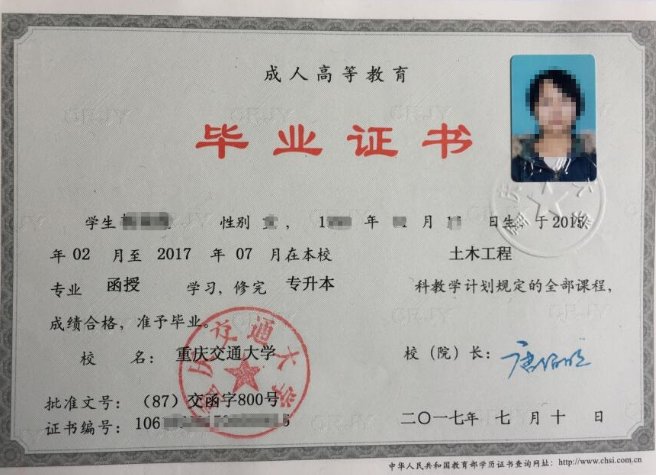 成人高等教育
毕业证书
学生 性别 ，1 年 月 日生，于2015
年 02 月至 2017 年 07 月在本校 土木工程
专业 函授 学习，修完 专升本 科教学计划规定的全部课程，
成绩合格，准予毕业。
校 名：重庆交通大学 校（院）长：
批准文号：（87）交函字800号
证书编号：106 5 二〇一七年 七 月 十 日
中华人民共和国教育部学历证书查询网址：http://www.chsi.com.cn